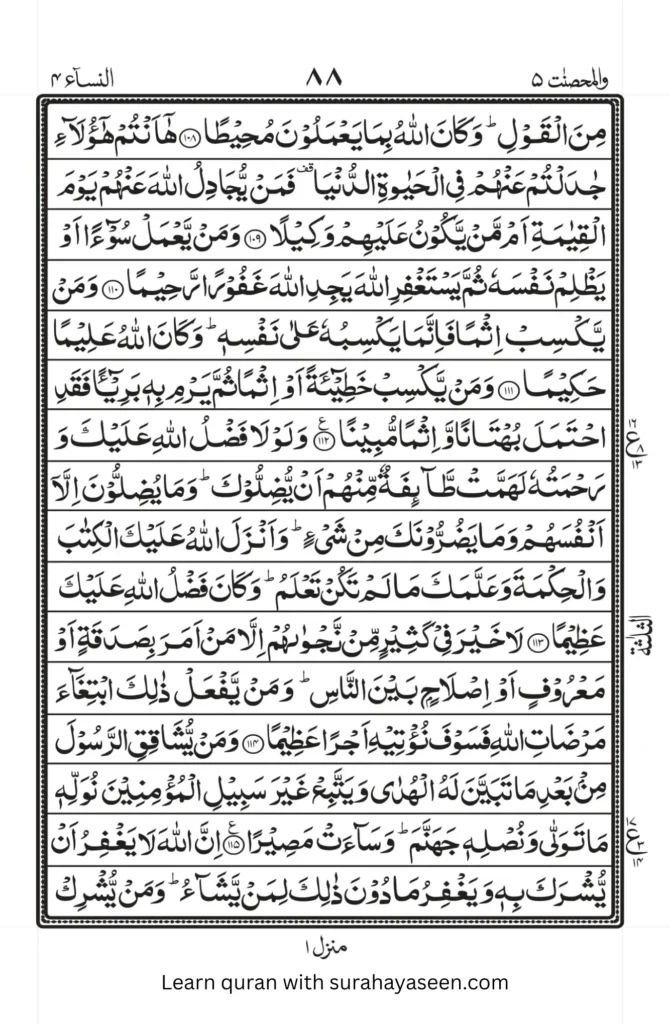 والمحصنٰت ۵ ۸۸ النسآء ۴
مِنَ الْقَوْلِ ؕ وَكَانَ اللّٰهُ بِمَا يَعْمَلُوْنَ مُحِيْطًا ﴿۱۰۸﴾ هٰۤاَنْتُمْ هٰۤؤُلَآءِ
جٰدَلْتُمْ عَنْهُمْ فِی الْحَيٰوةِ الدُّنْيَا ۫ فَمَنْ يُّجَادِلُ اللّٰهَ عَنْهُمْ يَوْمَ
الْقِيٰمَةِ اَمْ مَّنْ يَّكُوْنُ عَلَيْهِمْ وَكِيْلًا ﴿۱۰۹﴾ وَمَنْ يَّعْمَلْ سُوْٓءًا اَوْ
يَظْلِمْ نَفْسَهٗ ثُمَّ يَسْتَغْفِرِ اللّٰهَ يَجِدِ اللّٰهَ غَفُوْرًا رَّحِيْمًا ﴿۱۱۰﴾ وَمَنْ
يَّكْسِبْ اِثْمًا فَاِنَّمَا يَكْسِبُهٗ عَلٰی نَفْسِهٖ ؕ وَكَانَ اللّٰهُ عَلِيْمًا
حَكِيْمًا ﴿۱۱۱﴾ وَمَنْ يَّكْسِبْ خَطِيْٓئَةً اَوْ اِثْمًا ثُمَّ يَرْمِ بِهٖ بَرِيْٓئًا فَقَدِ
احْتَمَلَ بُهْتَانًا وَّاِثْمًا مُّبِيْنًا ﴿۱۱۲﴾ ع وَلَوْلَا فَضْلُ اللّٰهِ عَلَيْكَ وَ
۱۶ ع ۸ ۱۳
رَحْمَتُهٗ لَهَمَّتْ طَّآئِفَةٌ مِّنْهُمْ اَنْ يُّضِلُّوْكَ ؕ وَمَا يُضِلُّوْنَ اِلَّاۤ
اَنْفُسَهُمْ وَمَا يَضُرُّوْنَكَ مِنْ شَیْءٍ ؕ وَاَنْزَلَ اللّٰهُ عَلَيْكَ الْكِتٰبَ
وَالْحِكْمَةَ وَعَلَّمَكَ مَا لَمْ تَكُنْ تَعْلَمُ ؕ وَكَانَ فَضْلُ اللّٰهِ عَلَيْكَ
عَظِيْمًا ﴿۱۱۳﴾ لَا خَيْرَ فِیْ كَثِيْرٍ مِّنْ نَّجْوٰىهُمْ اِلَّا مَنْ اَمَرَ بِصَدَقَةٍ اَوْ
الثلٰثة
مَعْرُوْفٍ اَوْ اِصْلَاحٍۭ بَيْنَ النَّاسِ ؕ وَمَنْ يَّفْعَلْ ذٰلِكَ ابْتِغَآءَ
مَرْضَاتِ اللّٰهِ فَسَوْفَ نُؤْتِيْهِ اَجْرًا عَظِيْمًا ﴿۱۱۴﴾ وَمَنْ يُّشَاقِقِ الرَّسُوْلَ
مِنْۢ بَعْدِ مَا تَبَيَّنَ لَهُ الْهُدٰی وَيَتَّبِعْ غَيْرَ سَبِيْلِ الْمُؤْمِنِيْنَ نُوَلِّهٖ
مَا تَوَلّٰی وَنُصْلِهٖ جَهَنَّمَ ؕ وَسَآءَتْ مَصِيْرًا ﴿۱۱۵﴾ ع اِنَّ اللّٰهَ لَا يَغْفِرُ اَنْ
۱۷ ع ۳ ۱۴
يُّشْرَكَ بِهٖ وَيَغْفِرُ مَا دُوْنَ ذٰلِكَ لِمَنْ يَّشَآءُ ؕ وَمَنْ يُّشْرِكْ
منزل ۱
Learn quran with surahayaseen.com